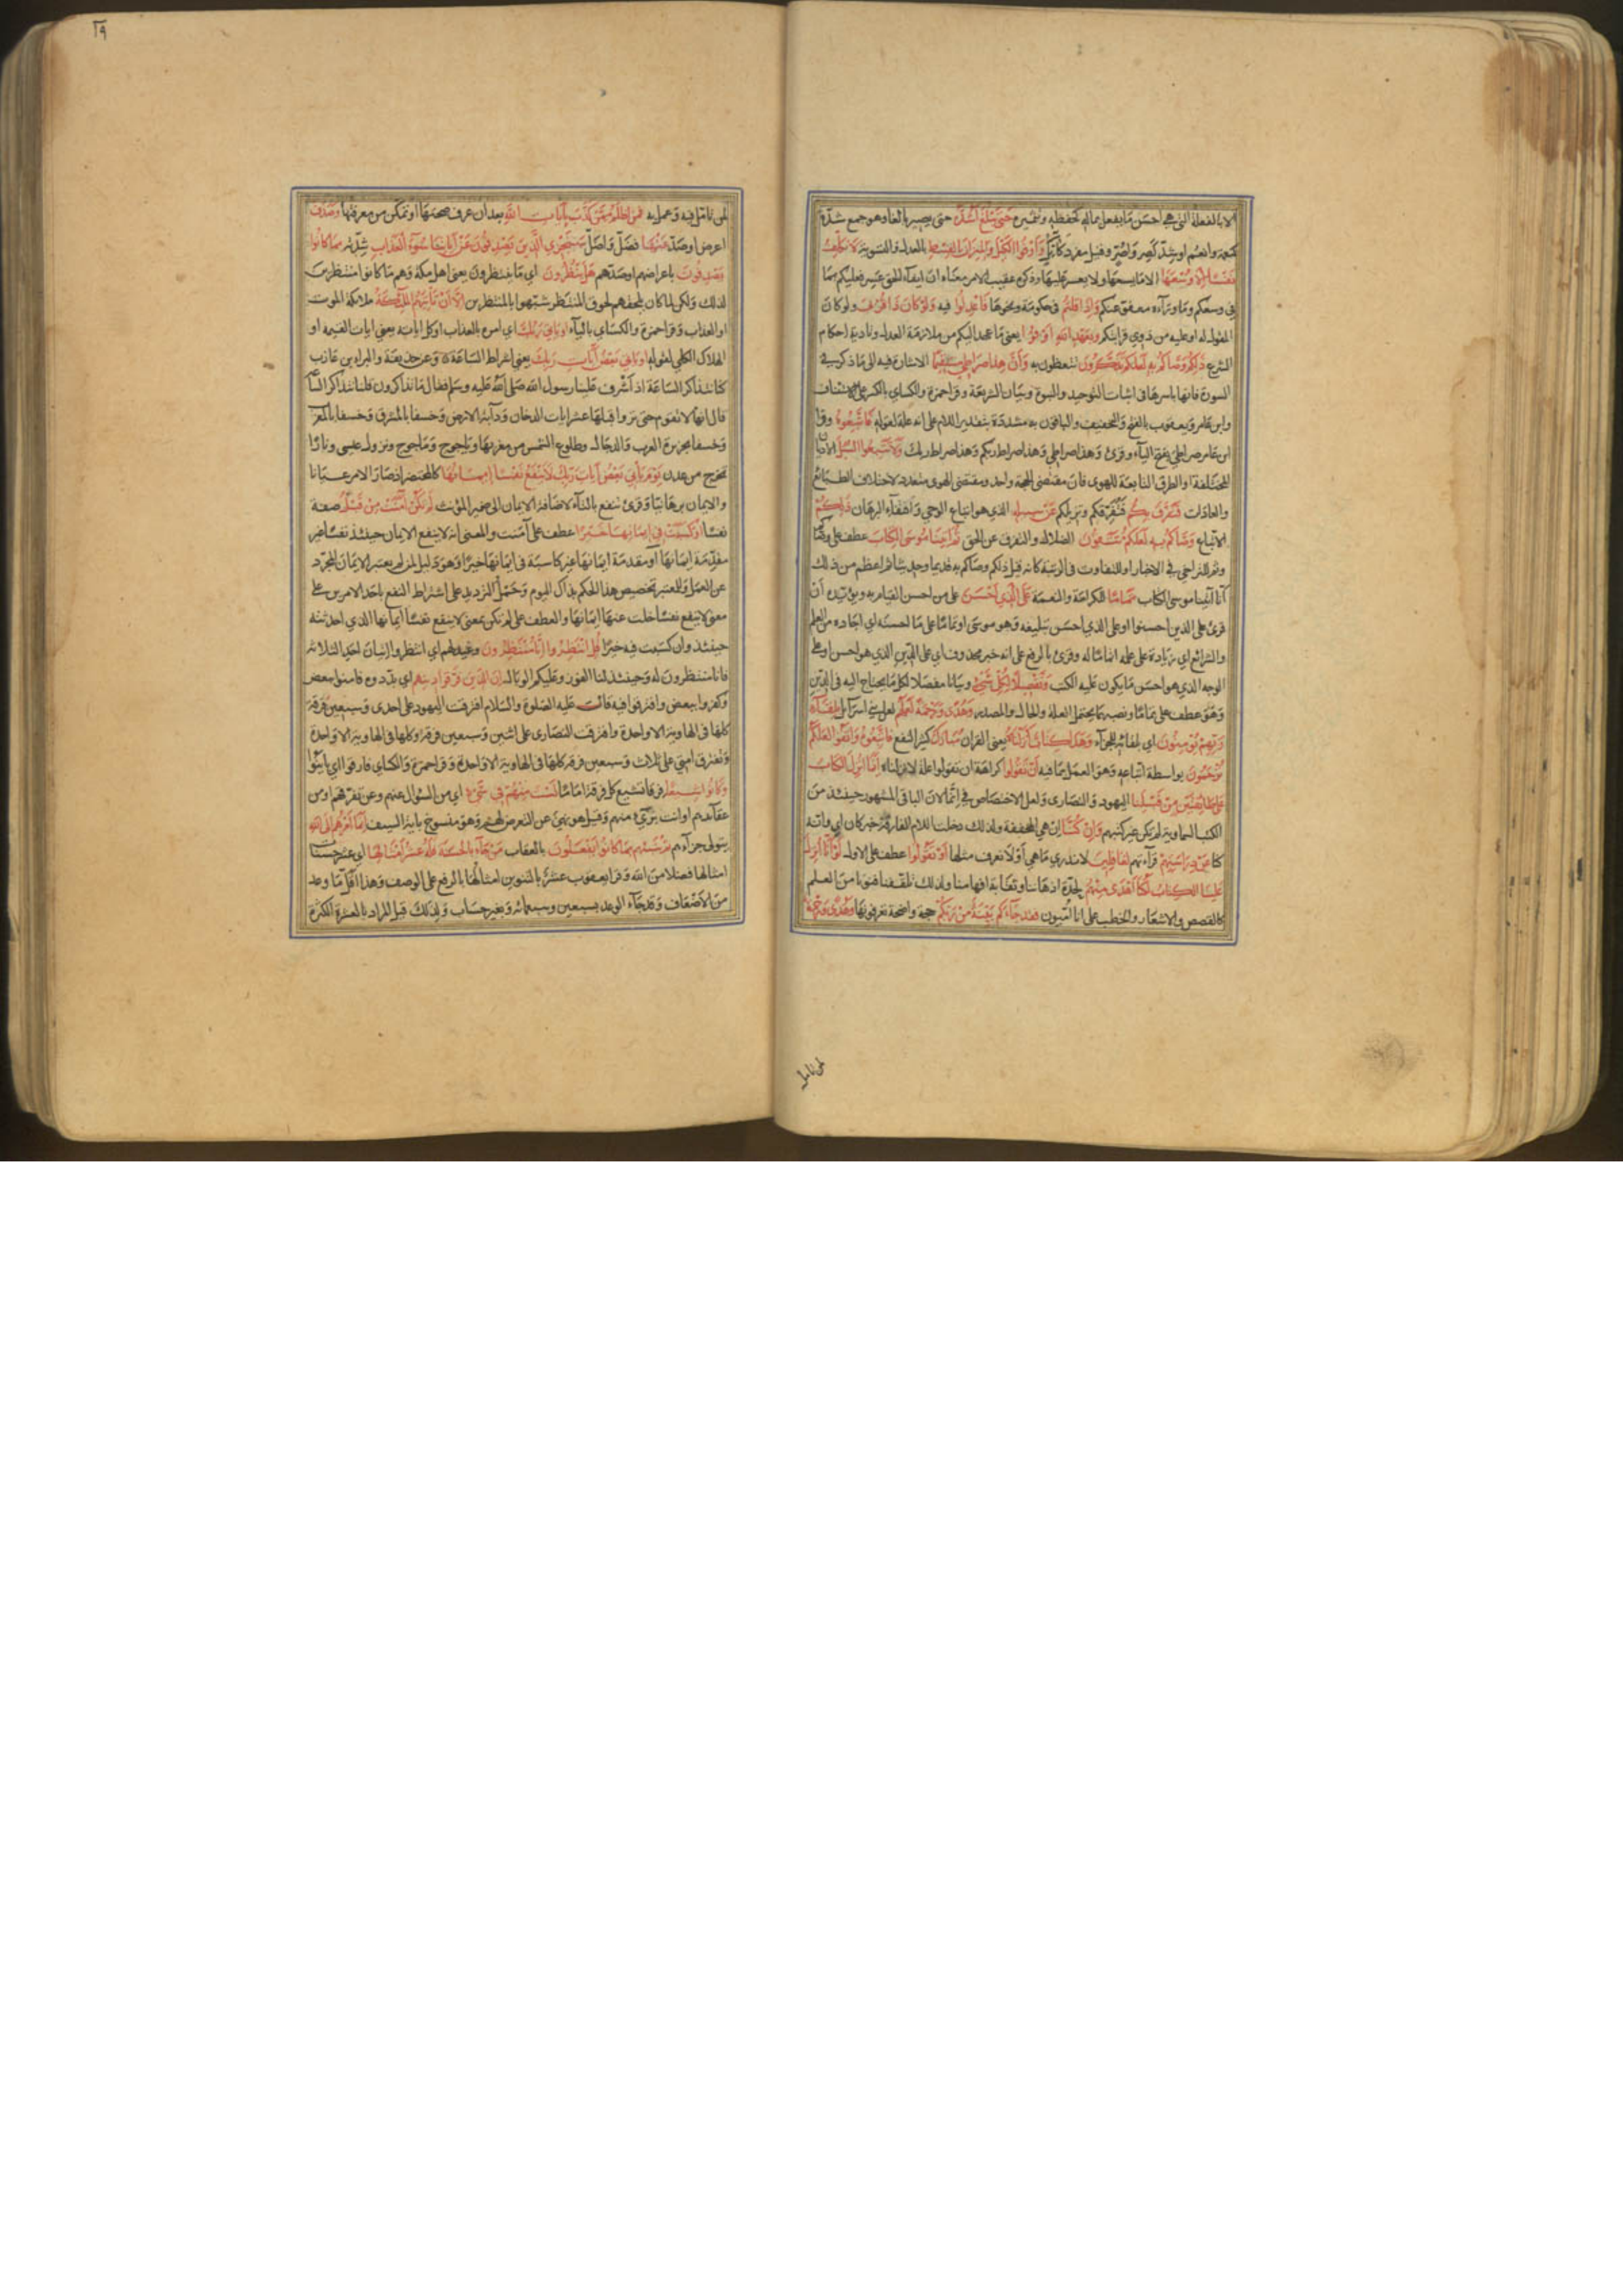 الا بالفعلة التي هي احسن ما يفعل بماله كحفظه وتثميره حَتّى يَبْلُغَ اَشُدَّهُ حتى يصير بالغا وهو جمع شدّة
كنعمة وانعُم او شدّ كصِرّ واصُرّ وقيل مفرد كآنُكٍ وَاَوْفُوا الْكَيْلَ وَالْمِيزَانَ بِالْقِسْطِ بالعدل والتسوية لاَ نُكَلِّفُ
نَفْسًا اِلاَّ وُسْعَهَا الا ما يسعها ولا يعسر عليها وذكره عقيب الامر معناه ان ايفاء الحق عسير فعليكم بما
في وسعكم وما ورآءه معفو عنكم وَاِذَا قُلْتُمْ في حكومة ونحوها فَاعْدِلُوا فيه وَلَوْ كَانَ ذَا قُرْبَى ولو كان
المقول له او عليه من ذوي قرابتكم وَبِعَهْدِ اللهِ اَوْفُوا يعني ما عهد اليكم من ملازمة العدل وتادية احكام
الشرع ذٰلِكُمْ وَصَّاكُمْ بِهِ لَعَلَّكُمْ تَذَكَّرُونَ تتعظون به وَاَنَّ هٰذَا صِرَاطِي مُسْتَقِيمًا الاشارة فيه الى ما ذكر في
السورة فانها باسرها في اثبات التوحيد والنبوة وبيان الشريعة وقرا حمزة والكساي بالكسر على الاستئناف
وابن عامر ويعقوب بالفتح والتخفيف والباقون به مشددة بتقدير اللام على انه علة لقوله فَاتَّبِعُوهُ وقرا
ابن عامر صراطيَ بفتح اليآء وقرئ وهذا صراطي وهذا صراط ربكم وهذا صراط ربك وَلاَ تَتَّبِعُوا السُّبُلَ الاديان
المختلفة او الطرق التابعة للهوى فان مقتضى الحجة واحد ومقتضى الهوى متعدد لاختلاف الطبائع
والعادات فَتَفَرَّقَ بِكُمْ فتفرقكم وتزيلكم عَنْ سَبِيلِهِ الذي هو اتباع الوحي واقتفآء البرهان ذٰلِكُمْ
الاتباع وَصَّاكُمْ بِهِ لَعَلَّكُمْ تَتَّقُونَ الضلال والتفرق عن الحق ثُمَّ اٰتَيْنَا مُوسَى الْكِتَابَ عطف على وصّاكم
وثم للتراخي في الاخبار او للتفاوت في الرتبة كانه قيل ذلكم وصاكم به قديما وحديثا ثم اعظم من ذلك
انا آتينا موسى الكتاب تَمَامًا للكرامة والنعمة عَلَى الَّذِي اَحْسَنَ على من احسن القيام به ويؤيده ان
قرئ على الذين احسنوا او على الذي احسن تبليغه وهو موسى او تماما على ما احسنه اي اجاده من العلم
والشرائع اي زيادة على علمه اتماما له وقرئ بالرفع على انه خبر محذوف اي على الذي هو احسن او على
الوجه الذي هو احسن ما يكون عليه الكتب وَتَفْصِيلاً لِكُلِّ شَيْءٍ وبيانا مفصلا لكل ما يحتاج اليه في الدين
وهو عطف على تماما ونصبهما يحتمل العلة والحال والمصدر وَهُدًى وَرَحْمَةً لَعَلَّهُمْ لعل بني اسرآئل بِلِقَآءِ
رَبِّهِمْ يُؤْمِنُونَ اي بلقائه للجزآء وَهٰذَا كِتَابٌ اَنْزَلْنَاهُ يعني القران مُبَارَكٌ كثير النفع فَاتَّبِعُوهُ وَاتَّقُوا لَعَلَّكُمْ
تُرْحَمُونَ بواسطة اتباعه وهو العمل بما فيه اَنْ تَقُولُوا كراهة ان تقولوا علة لانزلناه اِنَّمَا اُنْزِلَ الْكِتَابُ
عَلَى طَائِفَتَيْنِ مِنْ قَبْلِنَا اليهود والنصارى ولعل الاختصاص في انما لان الباقي المشهور حينئذ من
الكتب السماوية لم يكن غير كتبهم وَاِنْ كُنَّا ان هي المخففة ولذلك دخلت اللام الفارقة خبر كان اي وانه
كنا عَنْ دِرَاسَتِهِمْ قرآءتهم لَغَافِلِينَ لا ندري ما هي او لا نعرف مثلها اَوْ تَقُولُوا عطف على الاول لَوْ اَنَّا اُنْزِلَ
عَلَيْنَا الْكِتَابُ لَكُنَّا اَهْدَى مِنْهُمْ لحدة اذهاننا وثقابة افهامنا ولذلك تلقفنا فنونا من العلم
كالقصص والاشعار والخطب على انا اميون فَقَدْ جَآءَكُمْ بَيِّنَةٌ مِنْ رَبِّكُمْ حجة واضحة تعرفونها وَهُدًى وَرَحْمَةٌ
لمن تامل
١٩
لمن تامل فيه وعمل به فَمَنْ اَظْلَمُ مِمَّنْ كَذَّبَ بِاٰيَاتِ اللهِ بعد ان عرف صحتها او تمكن من معرفتها وَصَدَفَ
اعرض او صدّ عَنْهَا فضلّ واضلّ سَنَجْزِي الَّذِينَ يَصْدِفُونَ عَنْ اٰيَاتِنَا سُوۤءَ الْعَذَابِ شدته بِمَا كَانُوا
يَصْدِفُونَ باعراضهم او صدهم هَلْ يَنْظُرُونَ اي ما ينتظرون يعني اهل مكة وهم ما كانوا منتظرين
لذلك ولكن لما كان يلحقهم لحوق المنتظر شبهوا بالمنتظرين اِلاَّ اَنْ تَأْتِيَهُمُ الْمَلٰئِكَةُ ملائكة الموت
او العذاب وقرا حمزة والكساي باليآء اَوْ يَأْتِيَ رَبُّكَ اي امره بالعذاب او كل اياته يعني ايات القيمة او
الهلاك الكلي لقوله اَوْ يَأْتِيَ بَعْضُ اٰيَاتِ رَبِّكَ يعني اشراط الساعة وعن حذيفة والبراء بن عازب
كنا نتذاكر الساعة اذ اشرف علينا رسول الله صلى الله عليه وسلم فقال ما تذاكرون قلنا نتذاكر الساعة
قال انها لا تقوم حتى تروا قبلها عشر ايات الدخان ودآبة الارض وخسفا بالمشرق وخسفا بالمغرب
وخسفا بجزيرة العرب والدجال وطلوع الشمس من مغربها وياجوج وماجوج ونزول عيسى ونارا
تخرج من عدن يَوْمَ يَأْتِي بَعْضُ اٰيَاتِ رَبِّكَ لاَ يَنْفَعُ نَفْسًا اِيمَانُهَا كالمحتضر اذ صار الامر عيانا
والايمان برهانيا وقرئ تنفع بالتآء لاضافة الايمان الى ضمير المؤنث لَمْ تَكُنْ اٰمَنَتْ مِنْ قَبْلُ صفة
نفسا اَوْ كَسَبَتْ فِي اِيمَانِهَا خَيْرًا عطف على آمنت والمعنى انه لا ينفع الايمان حينئذ نفسا غير
مقدّمة ايمانها او مقدمة ايمانها غير كاسبة في ايمانها خيرا وهو دليل لمن لم يعتبر الايمان المجرد
عن العمل وللمعتبر تخصيص هذا الحكم بذاك اليوم وحمل الترديد على اشتراط النفع باحد الامرين على
معنى لا ينفع نفسا خلت عنها ايمانها والعطف على لم تكن بمعنى لا ينفع نفسا ايمانها الذي احدثته
حينئذ وان كسبت فيه خيرا قُلِ انْتَظِرُوا اِنَّا مُنْتَظِرُونَ وعيد لهم اي انتظروا اتيان احد الثلاثة
فانا منتظرون له وحينئذ لنا الفوز وعليكم الوبال اِنَّ الَّذِينَ فَرَّقُوا دِينَهُمْ اي بدّدوه فامنوا ببعض
وكفروا ببعض وافترقوا فيه قال عليه الصلوة والسلام افترقت اليهود على احدى وسبعين فرقة
كلها في الهاوية الا واحدة وافترقت النصارى على اثنين وسبعين فرقة كلها في الهاوية الا واحدة
وتفترق امتي على ثلاث وسبعين فرقة كلها في الهاوية الا واحدة وقرا حمزة والكساي فارقوا اي باينوا
وَكَانُوا شِيَعًا فرقا تشيع كل فرقة اماما لَسْتَ مِنْهُمْ فِي شَيْءٍ اي من السؤال عنهم وعن تفرقهم او من
عقابهم او انت بريء منهم وقيل هو نهي عن التعرض لهم وهو منسوخ باية السيف اِنَّمَا اَمْرُهُمْ اِلَى اللهِ
يتولى جزآءهم ثُمَّ يُنَبِّئُهُمْ بِمَا كَانُوا يَفْعَلُونَ بالعقاب مَنْ جَآءَ بِالْحَسَنَةِ فَلَهُ عَشْرُ اَمْثَالِهَا اي عشر حسنات
امثالها فضلا من الله وقرا يعقوب عشرٌ بالتنوين امثالُها بالرفع على الوصف وهذا اقل ما وعد
من الاضعاف وقد جآء الوعد بسبعين وسبعمائة وبغير حساب ولذلك قيل المراد بالعشرة الكثرة